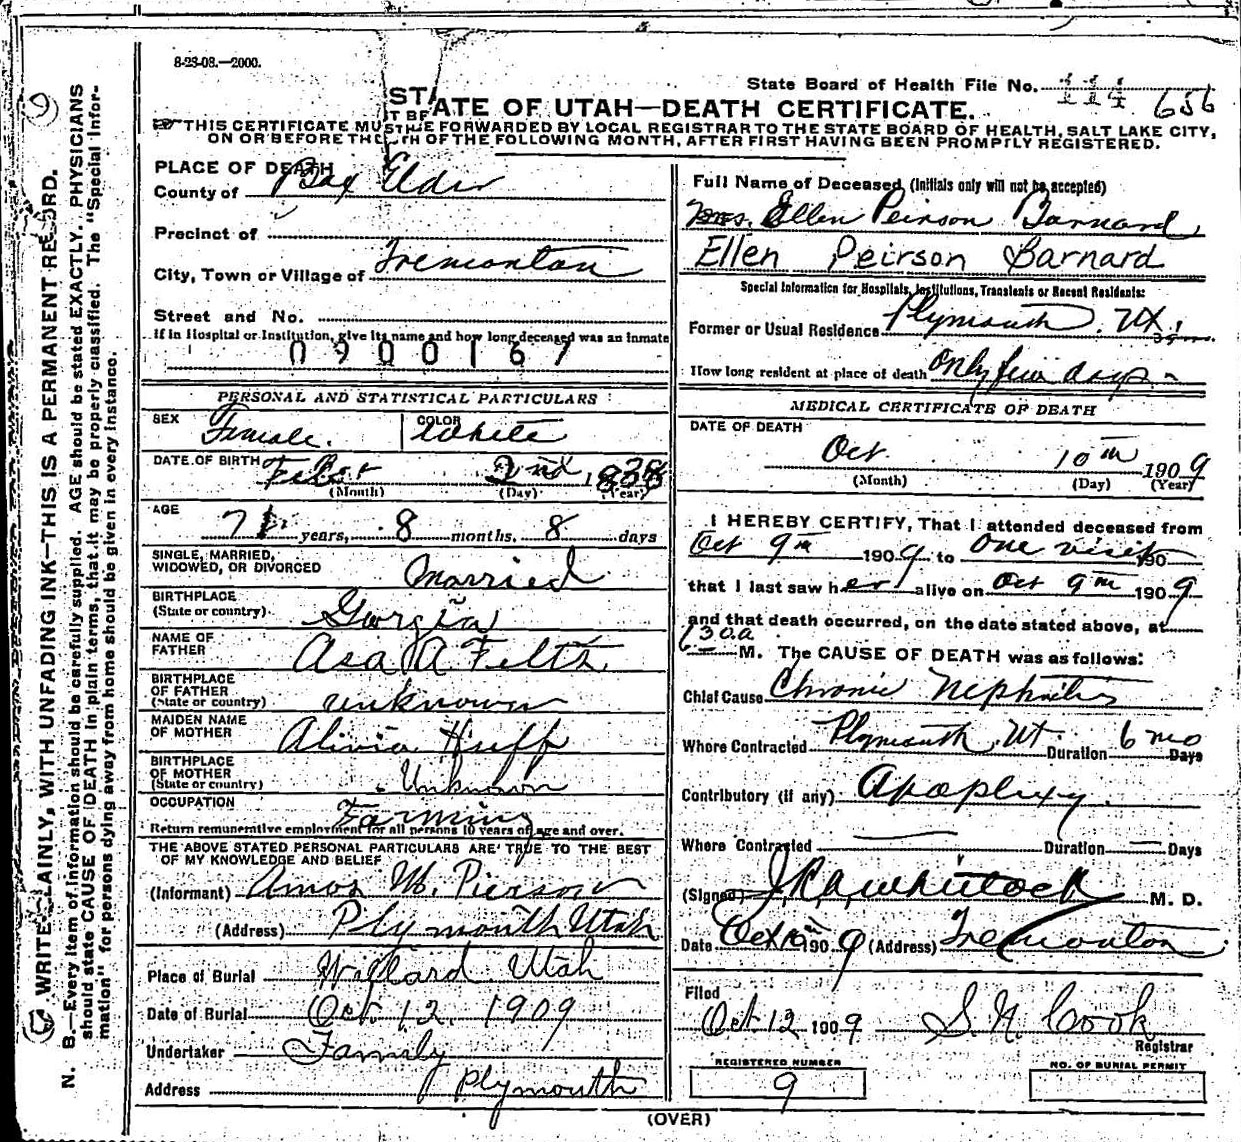 8-23-08.—2000.
State Board of Health File No. 114 656
STATE OF UTAH—DEATH CERTIFICATE.
THIS CERTIFICATE MUST BE FORWARDED BY LOCAL REGISTRAR TO THE STATE BOARD OF HEALTH, SALT LAKE CITY,
ON OR BEFORE THE 5TH OF THE FOLLOWING MONTH, AFTER FIRST HAVING BEEN PROMPTLY REGISTERED.
PLACE OF DEATH
County of Box Elder
Precinct of
City, Town or Village of Tremonton
Street and No.
If in Hospital or Institution, give its name and how long deceased was an inmate
0900167
PERSONAL AND STATISTICAL PARTICULARS
SEX Female. COLOR White
DATE OF BIRTH 2nd
(Month) (Day) (Year)
AGE 71 years, 8 months, 8 days
SINGLE, MARRIED,
WIDOWED, OR DIVORCED Married
BIRTHPLACE
(State or country) Gorgia
NAME OF
FATHER Asa A Felts
BIRTHPLACE
OF FATHER
(State or country) unknown
MAIDEN NAME
OF MOTHER Alivia Huff
BIRTHPLACE
OF MOTHER
(State or country) Unknown
OCCUPATION Farming
Return remunerative employment for all persons 10 years of age and over.
THE ABOVE STATED PERSONAL PARTICULARS ARE TRUE TO THE BEST
OF MY KNOWLEDGE AND BELIEF
(Informant) Amos M. Pierson
(Address) Plymouth Utah
Place of Burial Willard Utah
Date of Burial Oct. 12. 1909
Undertaker Family
Address Plymouth
Full Name of Deceased (Initials only will not be accepted)
Mrs. Ellen Peirson Barnard
Ellen Peirson Barnard
Special Information for Hospitals, Institutions, Transients or Recent Residents:
Former or Usual Residence Plymouth. Ut
How long resident at place of death only few days
MEDICAL CERTIFICATE OF DEATH
DATE OF DEATH
Oct 10th 1909
(Month) (Day) (Year)
I HEREBY CERTIFY, That I attended deceased from
Oct 9th 1909 to one visit 190
that I last saw her alive on Oct 9th 1909
and that death occurred, on the date stated above, at
630a M. The CAUSE OF DEATH was as follows:
Chief Cause Chronic Nephritis
Where Contracted Plymouth, Ut Duration 6 mo Days
Contributory (if any) Apoplexy.
Where Contracted Duration — Days
(Signed) M. D.
Date Oct 10th 1909 (Address) Tremonton
Filed
Oct 12 1909 S. N. Cook
Registrar
REGISTERED NUMBER
9
NO. OF BURIAL PERMIT
(OVER)
WRITE PLAINLY, WITH UNFADING INK—THIS IS A PERMANENT RECORD.
N. B.—Every item of information should be carefully supplied. AGE should be stated EXACTLY. PHYSICIANS
should state CAUSE OF DEATH in plain terms, that it may be properly classified. The "Special Infor-
mation" for persons dying away from home should be given in every instance.